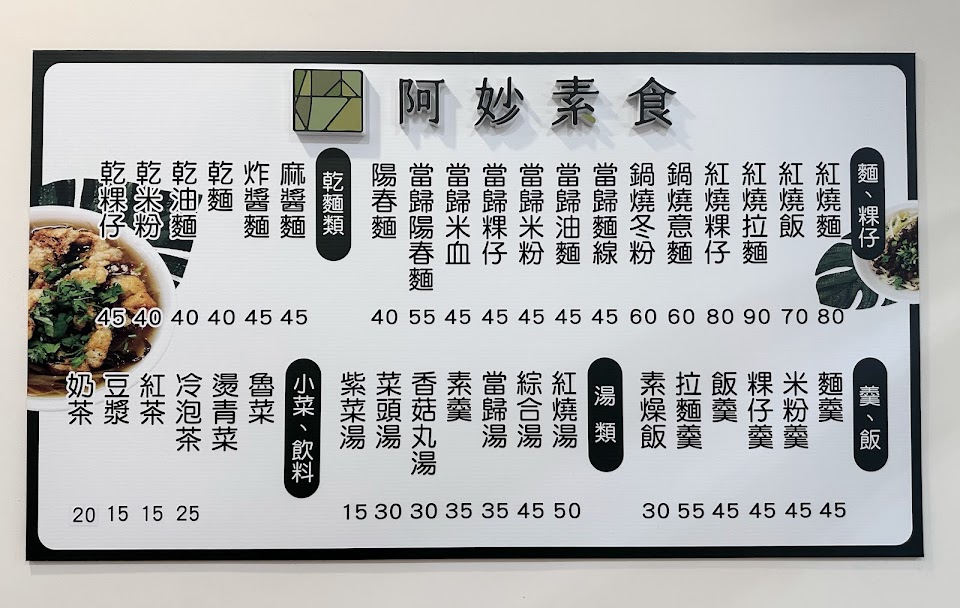 阿妙素食
麵、粿仔
紅燒麵 80
紅燒飯 70
紅燒拉麵 90
紅燒粿仔 80
鍋燒意麵 60
鍋燒冬粉 60
當歸麵線 45
當歸油麵 45
當歸米粉 45
當歸粿仔 45
當歸米血 45
當歸陽春麵 55
陽春麵 40
乾麵類
麻醬麵 45
炸醬麵 45
乾麵 40
乾油麵 40
乾米粉 40
乾粿仔 45
羹、飯
麵羹 45
米粉羹 45
粿仔羹 45
飯羹 45
拉麵羹 55
素燥飯 30
湯類
紅燒湯 50
綜合湯 45
當歸湯 35
素羹 35
香菇丸湯 30
菜頭湯 30
紫菜湯 15
小菜、飲料
魯菜
燙青菜
冷泡茶 25
紅茶 15
豆漿 15
奶茶 20